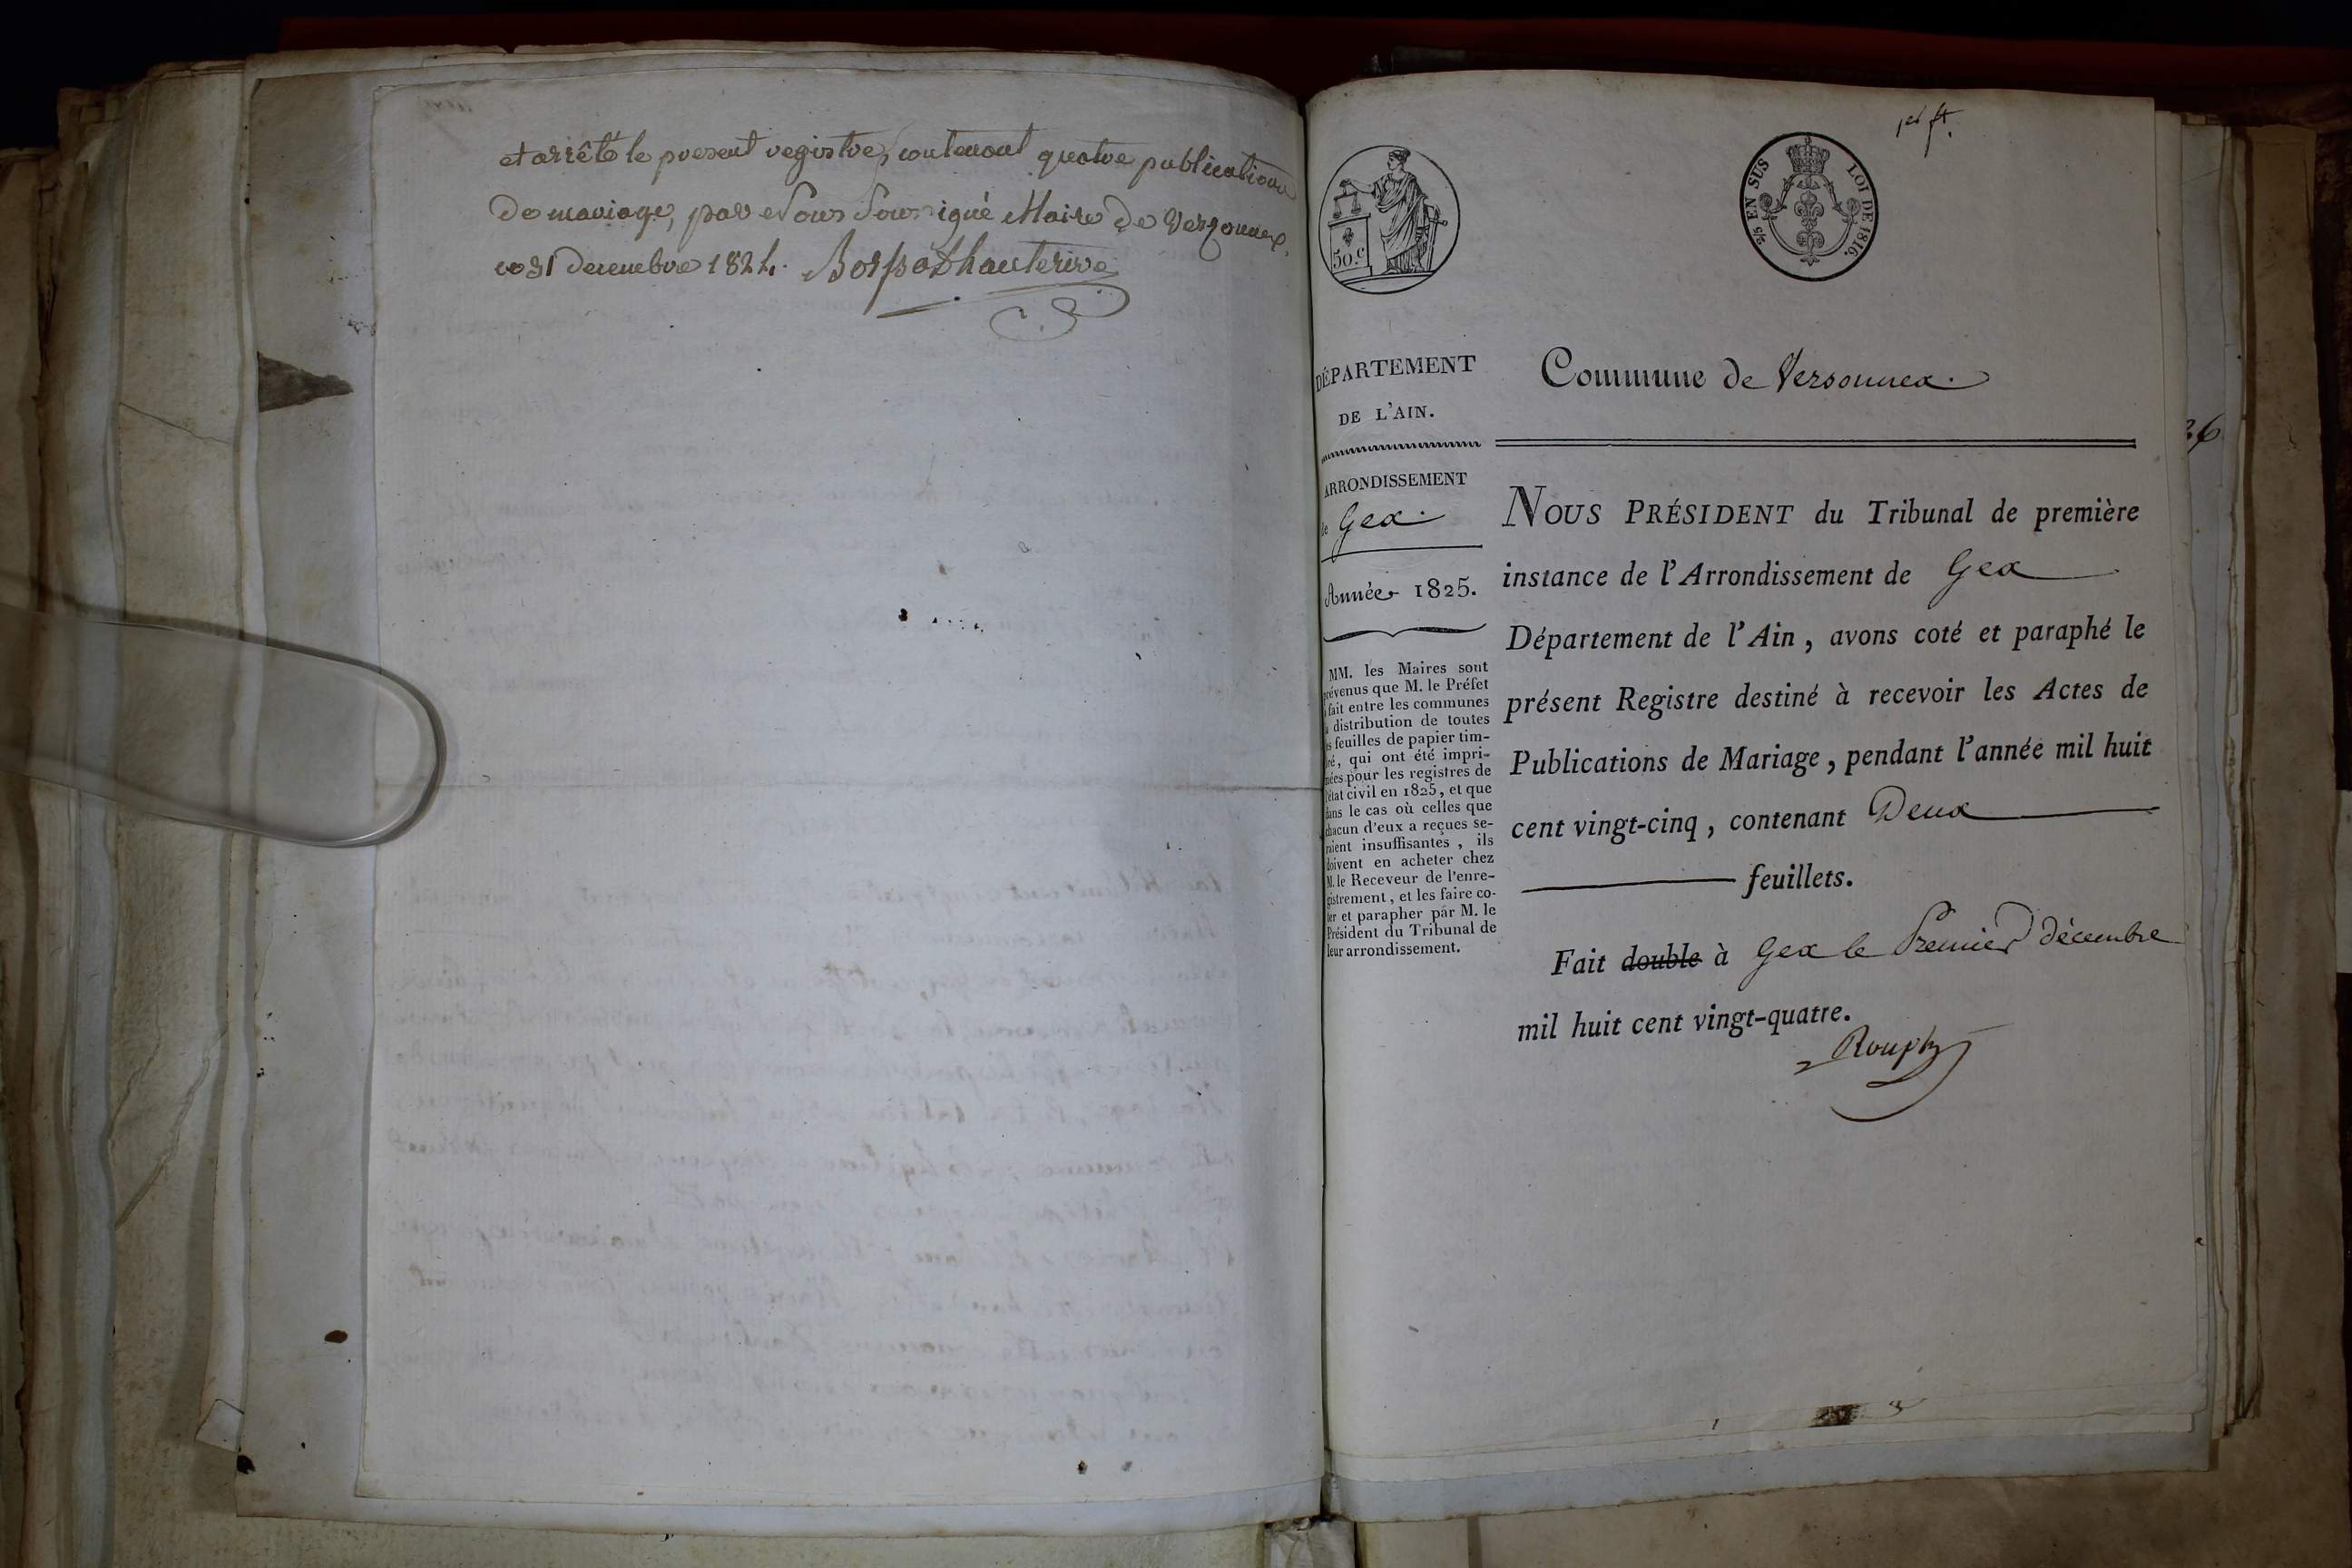 et arrêté le present registre, contenant quatre publications
de mariage, par Nous Soussigné Maire de Versonnex,
ce 31 decembre 1824.
1er ft.
50.c
2/5 EN SUS
LOI DE 1816.
DÉPARTEMENT
DE L'AIN.
ARRONDISSEMENT
de Gex.
Année 1825.
MM. les Maires sont
prévenus que M. le Préfet
a fait entre les communes
la distribution de toutes
les feuilles de papier tim-
bré, qui ont été impri-
mées pour les registres de
l'état civil en 1825, et que
dans le cas où celles que
chacun d'eux a reçues se-
raient insuffisantes, ils
doivent en acheter chez
M. le Receveur de l'enre-
gistrement, et les faire co-
ter et parapher par M. le
Président du Tribunal de
leur arrondissement.
Commune de Versonnex.
NOUS PRÉSIDENT du Tribunal de première
instance de l'Arrondissement de Gex
Département de l'Ain, avons coté et paraphé le
présent Registre destiné à recevoir les Actes de
Publications de Mariage, pendant l'année mil huit
cent vingt-cinq, contenant Deux
feuillets.
Fait double à Gex le Premier décembre
mil huit cent vingt-quatre.